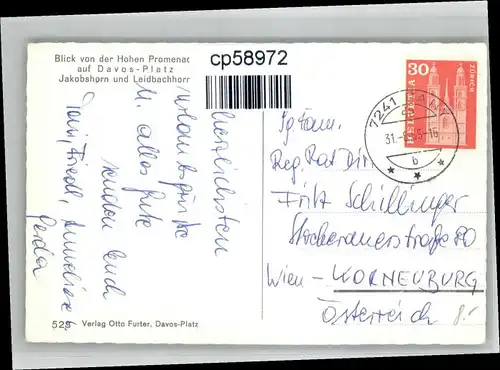 Blick von der Hohen Promenad
auf Davos-Platz
Jakobshorn und Leidbachhorn
cp58972
Herzlichsten
Urlaubsgrüße
u. alles Gute
senden Euch
Friedl, Annelies u.
Gerda
528 Verlag Otto Furter, Davos-Platz
30
HELVETIA
ZÜRICH
7241
31.
b
Fam.
Reg. Rat Dir
Fritz Schillinger
Stockerauerstraße 80
Wien - KORNEUBURG
Österreich